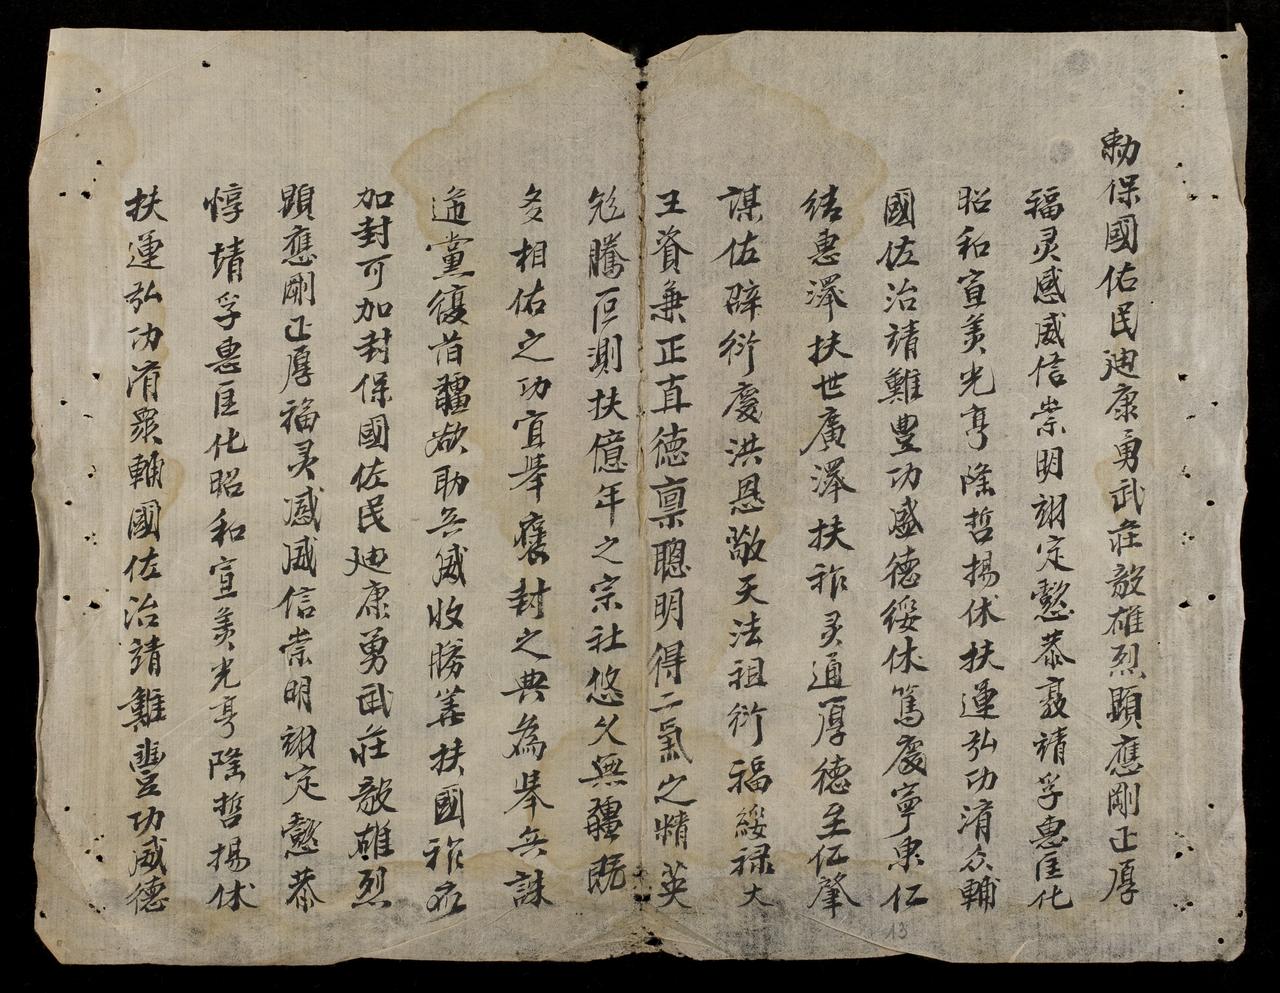 勅保國佑民廸康勇武莊毅雄烈顯應剛正厚
福灵感威信崇明翊定懿恭靖孚惠匡化
昭和宣美光亨隆哲揚休扶運弘功濟众輔
國佐治靖難豊功盛德綏休篤慶寧東仁
结惠澤扶世廣澤扶祚灵通厚德至仁肇
謀佑辟衍慶洪恩敬天法祖衍福綏禄大
王資兼正直德禀聰明得二氣之精英
騰叵測扶億年之宗社悠久無疆既
多相佑之功宜舉褒封之典為舉兵誅
逆黨復旧疆欲助兵威收勝筭扶國祚应
加封可加封保國佐民廸康勇武莊毅雄烈
顕應剛正厚福灵感威信崇明翊定懿恭
惇靖孚惠匡化昭和宣美光亨隆哲揚休
扶運弘功濟眾輔國佐治靖難豊功威德
13